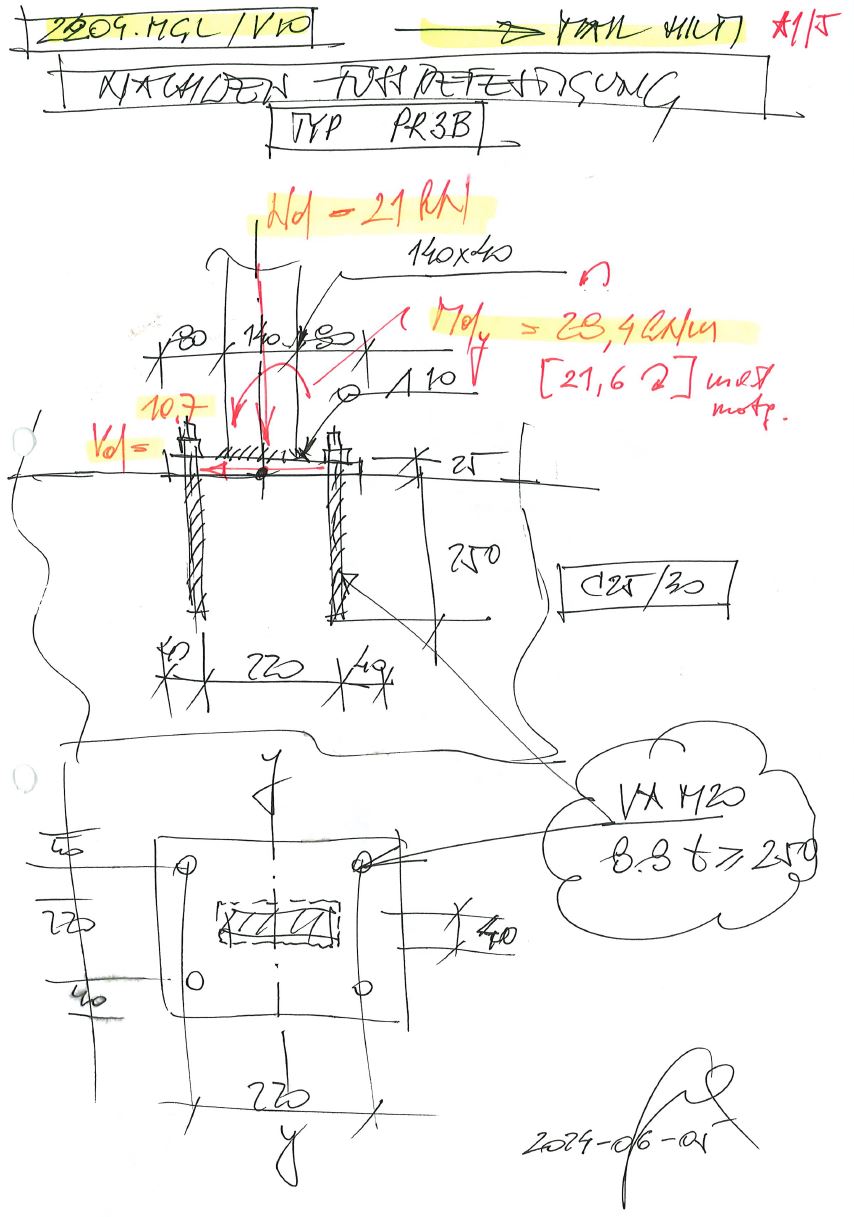 2209.MGL/V10 MAIL HILTI A1/5
NACHWEIS FUSSBEFESTIGUNG
TYP PR3B
Nd = 21 kN
140x40
Mdy = 28,4 kNm
80 140 80
[21,6
10
10,7
Vd =
25
250
C25/30
40 220 40
y
VA M20
8.8 t ≥ 250
40
220
40
40
220
y
2024-06-05